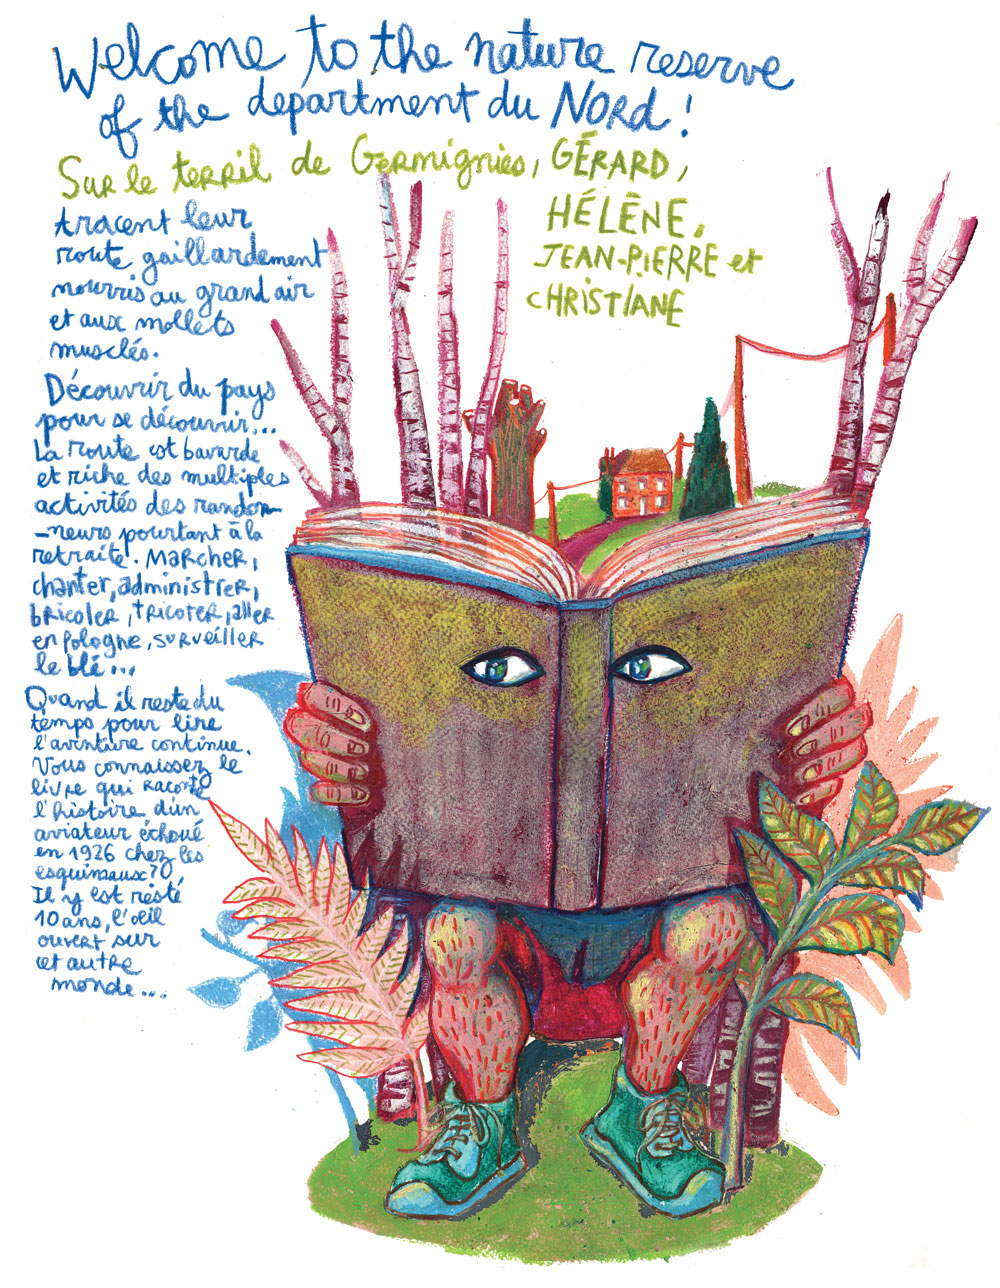 Welcome to the nature reserve
of the départment du Nord !
Sur le terril de Germignies, GÉRARD,
HÉLÈNE,
JEAN-PIERRE et
CHRISTIANE
tracent leur
route gaillardement
nourris au grand air
et aux mollets
musclés.
Découvrir du pays
pour se découvrir...
La route est bavarde
et riche des multiples
activités des randon-
-neurs pourtant à la
retraite. Marcher,
chanter, administrer,
bricoler, tricoter, aller
en Pologne, surveiller
le blé...
Quand il reste du
temps pour lire
l'aventure continue.
Vous connaissez le
livre qui raconte
l'histoire d'un
aviateur échoué
en 1926 chez les
esquimaux ?
Il y est resté
10 ans, l'œil
ouvert sur
cet autre
monde...